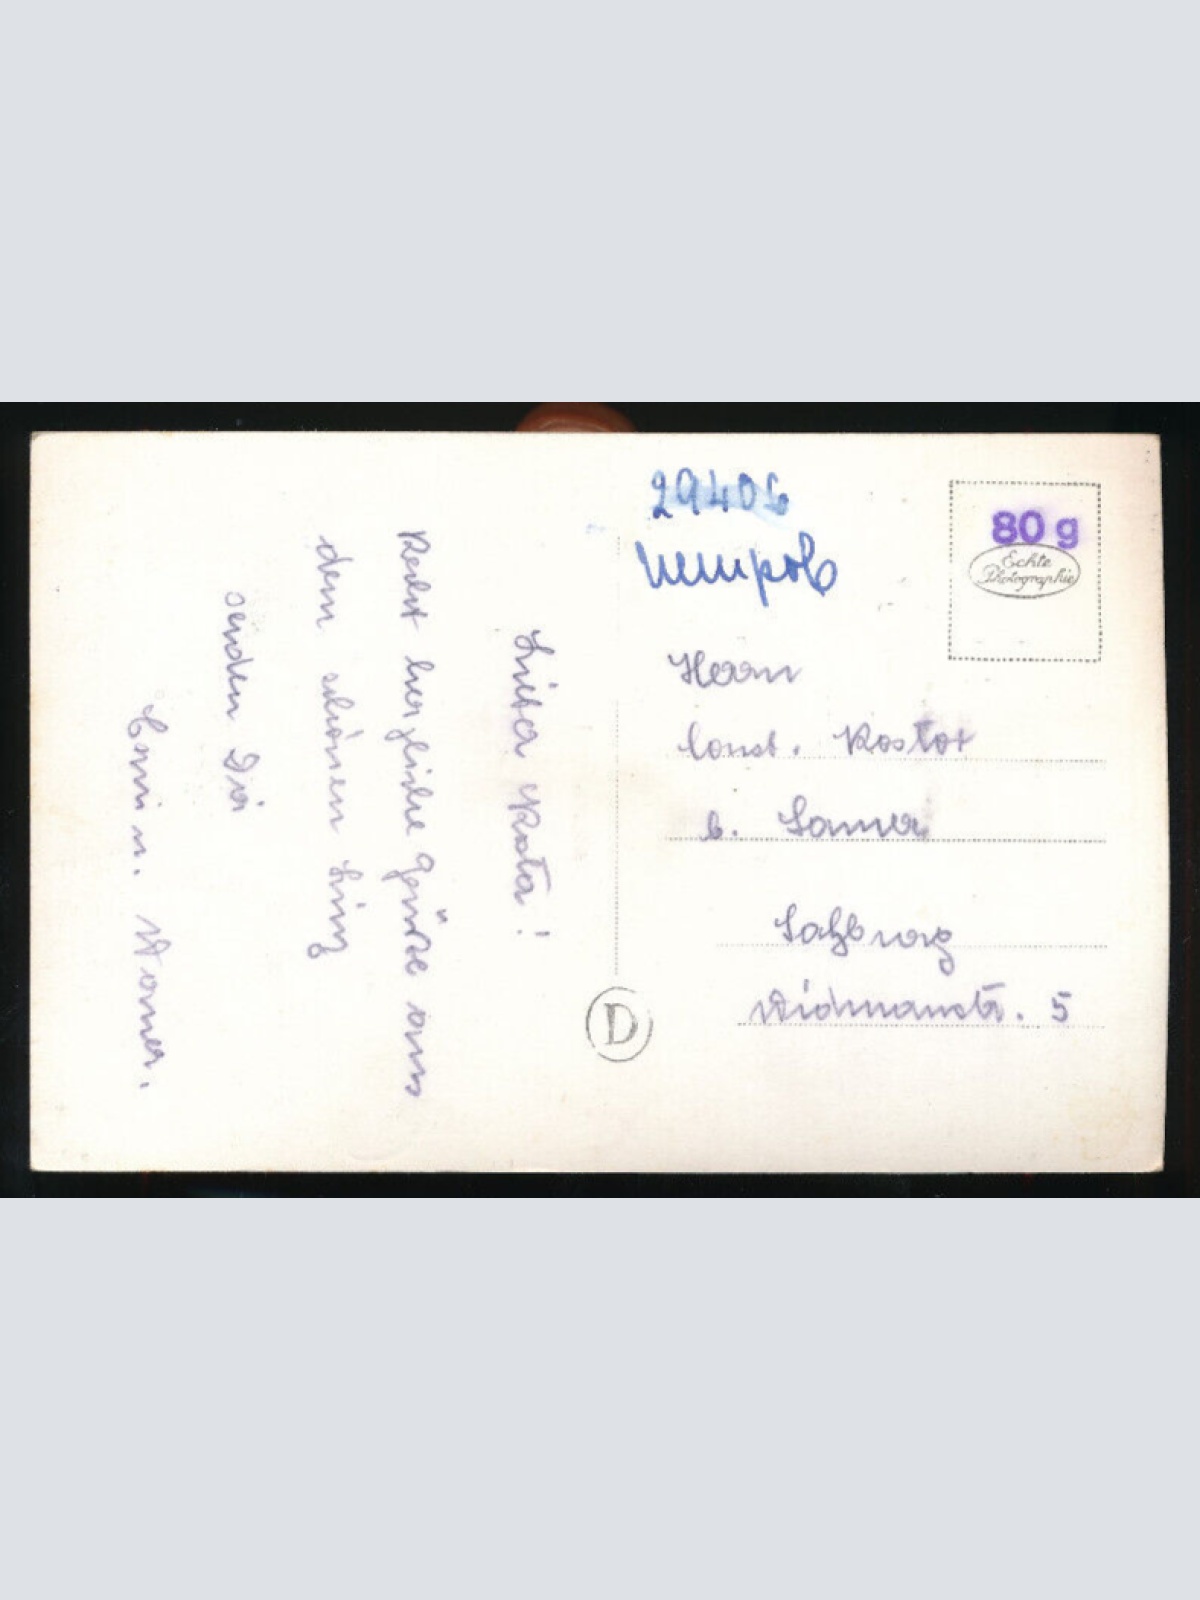 29406
Петров
80 g
Echte
Photographie
Herrn
Const. Kostor
b. Samer
Salzburg
Widmannstr. 5
D
Lieber Kosta!
Recht herzliche Grüße aus
dem schönen Linz
senden Dir
Emmi u. Werner.